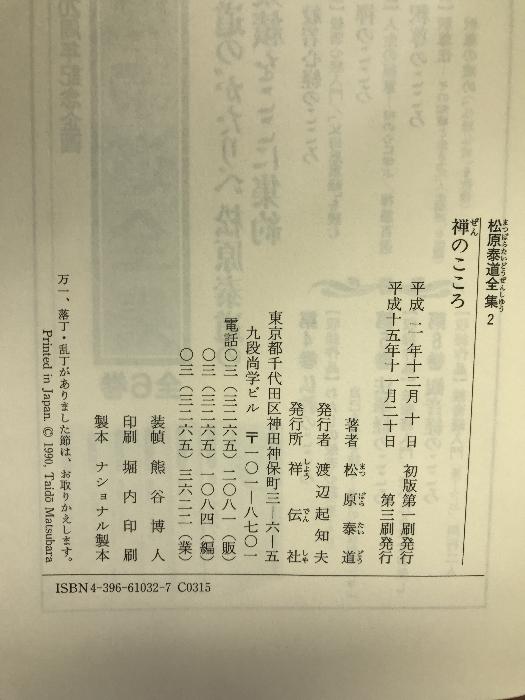 松原泰道全集2
まつばらたいどうぜんしゅう
禅のこころ
ぜん
平成 二年十二月 十日 初版第一刷発行
平成十五年十一月二十日 第三刷発行
著者 松原泰道
まつ ばら たい どう
発行者 渡辺起知夫
発行所 祥伝社
しょう でん しゃ
東京都千代田区神田神保町三―六―五
九段尚学ビル 〒一〇一―八七〇一
電話〇三(三二六五)二〇八一(販)
〇三(三二六五)一〇八四(編)
〇三(三二六五)三六二二(業)
装幀 熊谷博人
印刷 堀内印刷
製本 ナショナル製本
万一、落丁・乱丁がありました節は、お取りかえします。
Printed in Japan. © 1990, Taidō Matsubara
ISBN4-396-61032-7 C0315